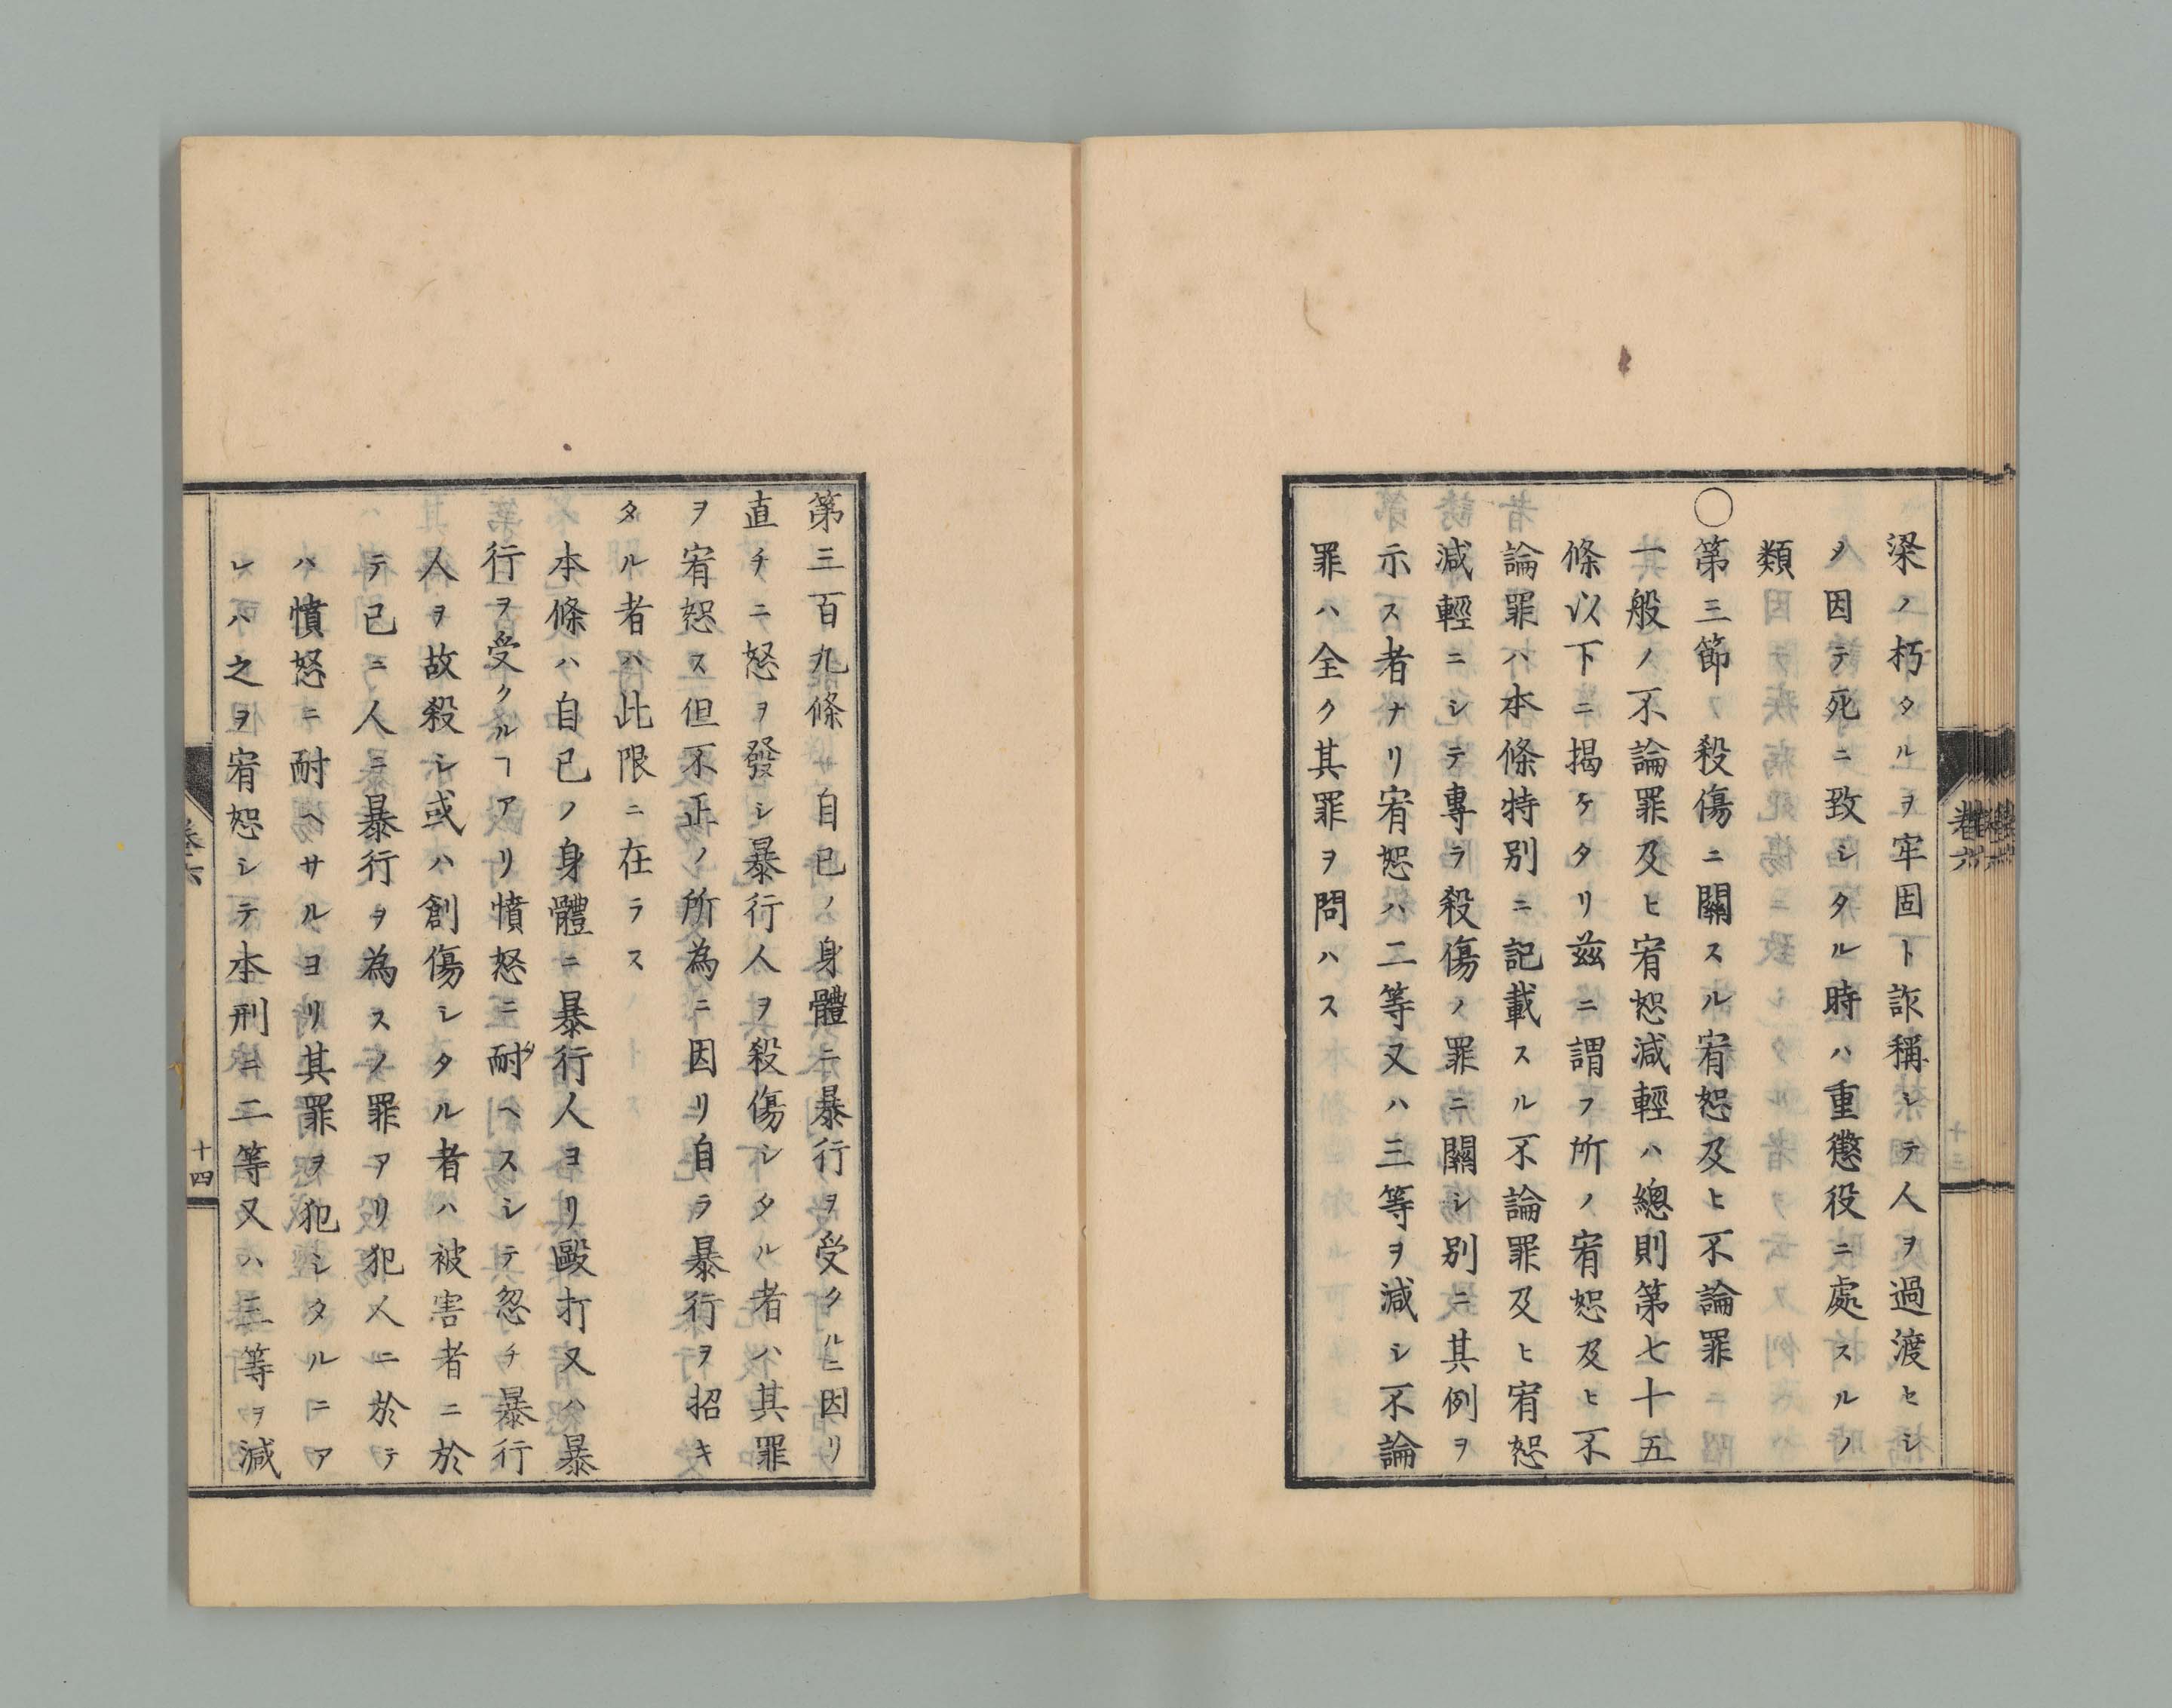 梁ノ朽タルヲ牢固ト詐稱シテ人ヲ過渡セシ
メ因テ死ニ致シタル時ハ重懲役ニ處スルノ
類
○第三節 殺傷ニ關スル宥恕及ヒ不論罪
一般ノ不論罪及ヒ宥恕減輕ハ總則第七十五
條以下ニ揭ケタリ茲ニ謂フ所ノ宥恕及ヒ不
論罪ハ本條特別ニ記載スル不論罪及ヒ宥恕
減輕ニシテ專ラ殺傷ノ罪ニ關シ別ニ其例ヲ
示ス者ナリ宥恕ハ二等又ハ三等ヲ減シ不論
罪ハ全ク其罪ヲ問ハス
第三百九條 自己ノ身體ニ暴行ヲ受クルニ因リ
直チニ怒ヲ發シ暴行人ヲ殺傷シタル者ハ其罪
ヲ宥恕ス但不正ノ所為ニ因リ自ラ暴行ヲ招キ
タル者ハ此限ニ在ラス
本條ハ自己ノ身體ニ暴行人ヨリ毆打又ハ暴
行ヲ受クルヿアリ憤怒ニ耐ヘスシテ忽チ暴行
人ヲ故殺シ或ハ創傷シタル者ハ被害者ニ於
テ已ニ人ニ暴行ヲ為スノ罪アリ犯人ニ於テ
ハ憤怒ニ耐ヘサルヨリ其罪ヲ犯シタルニア
レハ之ヲ宥恕シテ本刑ニ二等又ハ三等ヲ減
卷六
十四